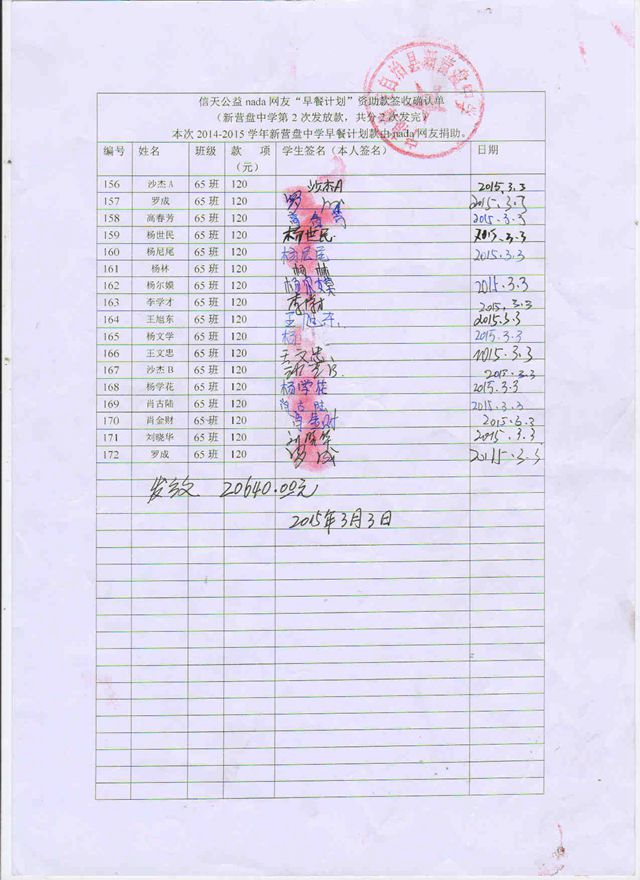 自治县新营盘中学
信天公益nada网友“早餐计划”资助款签收确认单
（新营盘中学第2次发放款，共分2次发完）
本次2014-2015学年新营盘中学早餐计划款由nada网友捐助。
编号 姓名 班级 款 项（元） 学生签名（本人签名） 日期
156 沙杰A 65班 120 沙杰A 2015.3.3
157 罗成 65班 120 罗 2015.3.3
158 高春芳 65班 120 高春芳 2015.3.3
159 杨世民 65班 120 杨世民 2015.3.3
160 杨尼尾 65班 120 杨尼尾 2015.3.3
161 杨林 65班 120 杨林
162 杨尔嫫 65班 120 2015.3.3
163 李学才 65班 120 李学才 2015.3.3
164 王旭东 65班 120 王旭东 2015.3.3
165 杨文学 65班 120 杨 2015.3.3
166 王文忠 65班 120 王文忠 2015.3.3
167 沙杰B 65班 120 沙杰B 2015.3.3
168 杨学花 65班 120 杨学花 2015.3.3
169 肖古陆 65班 120 肖古陆 2015.3.3
170 肖金财 65班 120 肖金财 2015.3.3
171 刘晓华 65班 120 刘晓华 2015.3.3
172 罗成 65班 120 罗成 2015.3.3
发放 20640.00元
2015年3月3日